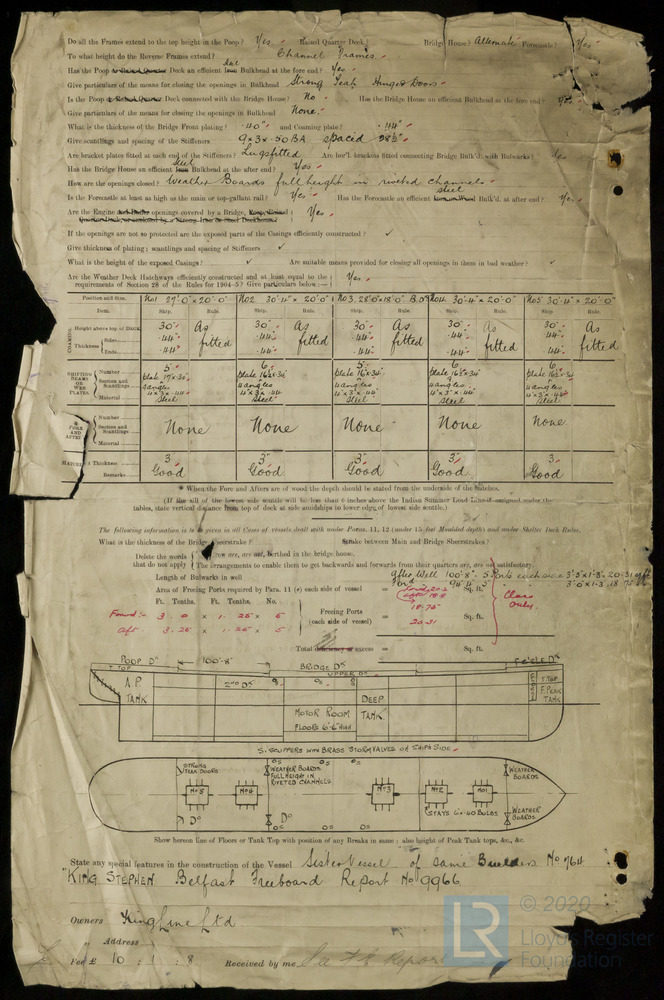 Do all the Frames extend to the top height in the Poop? Yes Raised Quarter Deck? Bridge House? Alternate Forecastle? Yes
To what height do the Reverse Frames extend? Channel Frames
Has the Poop or Raised Quarter Deck an efficient Iron Bulkhead at the fore end? Yes
Give particulars of the means for closing the openings in Bulkhead Strong Teak Hinged Doors
Is the Poop or Raised Quarter Deck connected with the Bridge House? No Has the Bridge House an efficient Bulkhead at the fore end? Yes
Give particulars of the means for closing the openings in Bulkhead None
What is the thickness of the Bridge Front plating? .40" and Coaming plate? .44"
Give scantlings and spacing of the Stiffeners 9 x 3 x .50 BA spaced 28½"
Are bracket plates fitted at each end of the Stiffeners? Lugs fitted Are hor'l. brackets fitted connecting Bridge Bulk'd. with Bulwarks? Yes
Has the Bridge House an efficient Steel Iron Bulkhead at the after end? Yes
How are the openings closed? Weather Boards full height in riveted channels
Is the Forecastle at least as high as the main or top-gallant rail? Yes Has the Forecastle an efficient steel Iron or Wood Bulk'd. at after end? Yes
Are the Engine and Boiler openings covered by a Bridge, Yes
If the openings are not so protected are the exposed parts of the Casings efficiently constructed? ✓
Give thickness of plating; scantlings and spacing of Stiffeners ✓
What is the height of the exposed Casings? ✓ Are suitable means provided for closing all openings in them in bad weather? ✓
Are the Weather Deck Hatchways efficiently constructed and at least equal to the requirements of Section 28 of the Rules for 1904-5? Give particulars below:— Yes
Position and Size. No1 29'·0" x 20'·0" No2. 30'·4" x 20'0" No 3. 28'·0" x 18'·0" B.D. No4. 30'·4" x 20'·0" No5 30'·4" x 20'·0"
Item. Ship. Rule. Ship. Rule. Ship. Rule. Ship. Rule. Ship. Rule.
COAMING Height above top of Deck 30" As 30" As 30" As 30" As 30" As
Thickness Sides .44" fitted .44" fitted .44" fitted .44" fitted .44" fitted
Ends .44" .44" .44" .44" .44"
SHIFTING BEAMS OR WEB PLATES Number 5 6 5 6 6
Section and Scantlings
Material Steel Steel Steel Steel Steel
FORE AND AFTERS Number
Section and Scantlings None None None None None
Material
HATCHES Thickness 3" 3" 3" 3" 3"
Remarks Good Good Good Good Good
* When the Fore and Afters are of wood the depth should be stated from the underside of the hatches.
(If the sill of the lowest side scuttle will be less than 6 inches above the Indian Summer Load Line if assigned under the
tables, state vertical distance from top of deck at side amidships to lower edge of lowest side scuttle.)
The following information is to be given in all Cases of vessels dealt with under Paras. 11, 12 (under 15 feet Moulded depth) and under Shelter Deck Rules.
What is the thickness of the Bridge Sheerstrake? Strake between Main and Bridge Sheerstrakes?
Delete the words that do not apply
Crew are, are not, berthed in the bridge house.
The arrangements to enable them to get backwards and forwards from their quarters are, are not satisfactory.
Length of Bulwarks in well After Well 100'·8" - 5 Ports each side 3'3" x 1'·3" - 20·31
Ford 94'·4" 5 3'·0 x 1'·3 18·75
Area of Freeing Ports required by Para. 11 (e) each side of vessel = Sq. ft. Class only.
Ft. Tenths. Ft. Tenths. No.
Forwd:- 3.0 x 1.25 x 5
Freeing Ports (each side of vessel) = 18·75 Sq. ft.
Aft 3.25 x 1.25 x 5 20·31
Total deficiency or excess = Sq. ft.
POOP DK 100'·8" BRIDGE DK F'C'LE DK
T. TOP UPPER DK
A.P. TANK 2ND DK DEEP TANK T. TOP F. PEAK TANK
MOTOR ROOM
FLOORS 6'·6" HIGH
S. SCUPPERS WITH BRASS STORMVALVES ON SHIPS SIDE
STRONG TEAK DOORS
WEATHER BOARDS FULL HEIGHT IN RIVETED CHANNELS
WEATHER BOARDS
No5 No4 No3 No2 No1
Do Do
WEATHER BOARDS
Show hereon line of Floors or Tank Top with position of any Breaks in same; also height of Peak Tank tops, &c., &c.
State any special features in the construction of the Vessel Sister Vessel of same Builders No 764
"KING STEPHEN Belfast Freeboard Report No 9966
Owners King Line Ltd
Address
Fee £ 10 : 1 : 8 Received by me,
LR © 2020
Lloyd's Register
Foundation